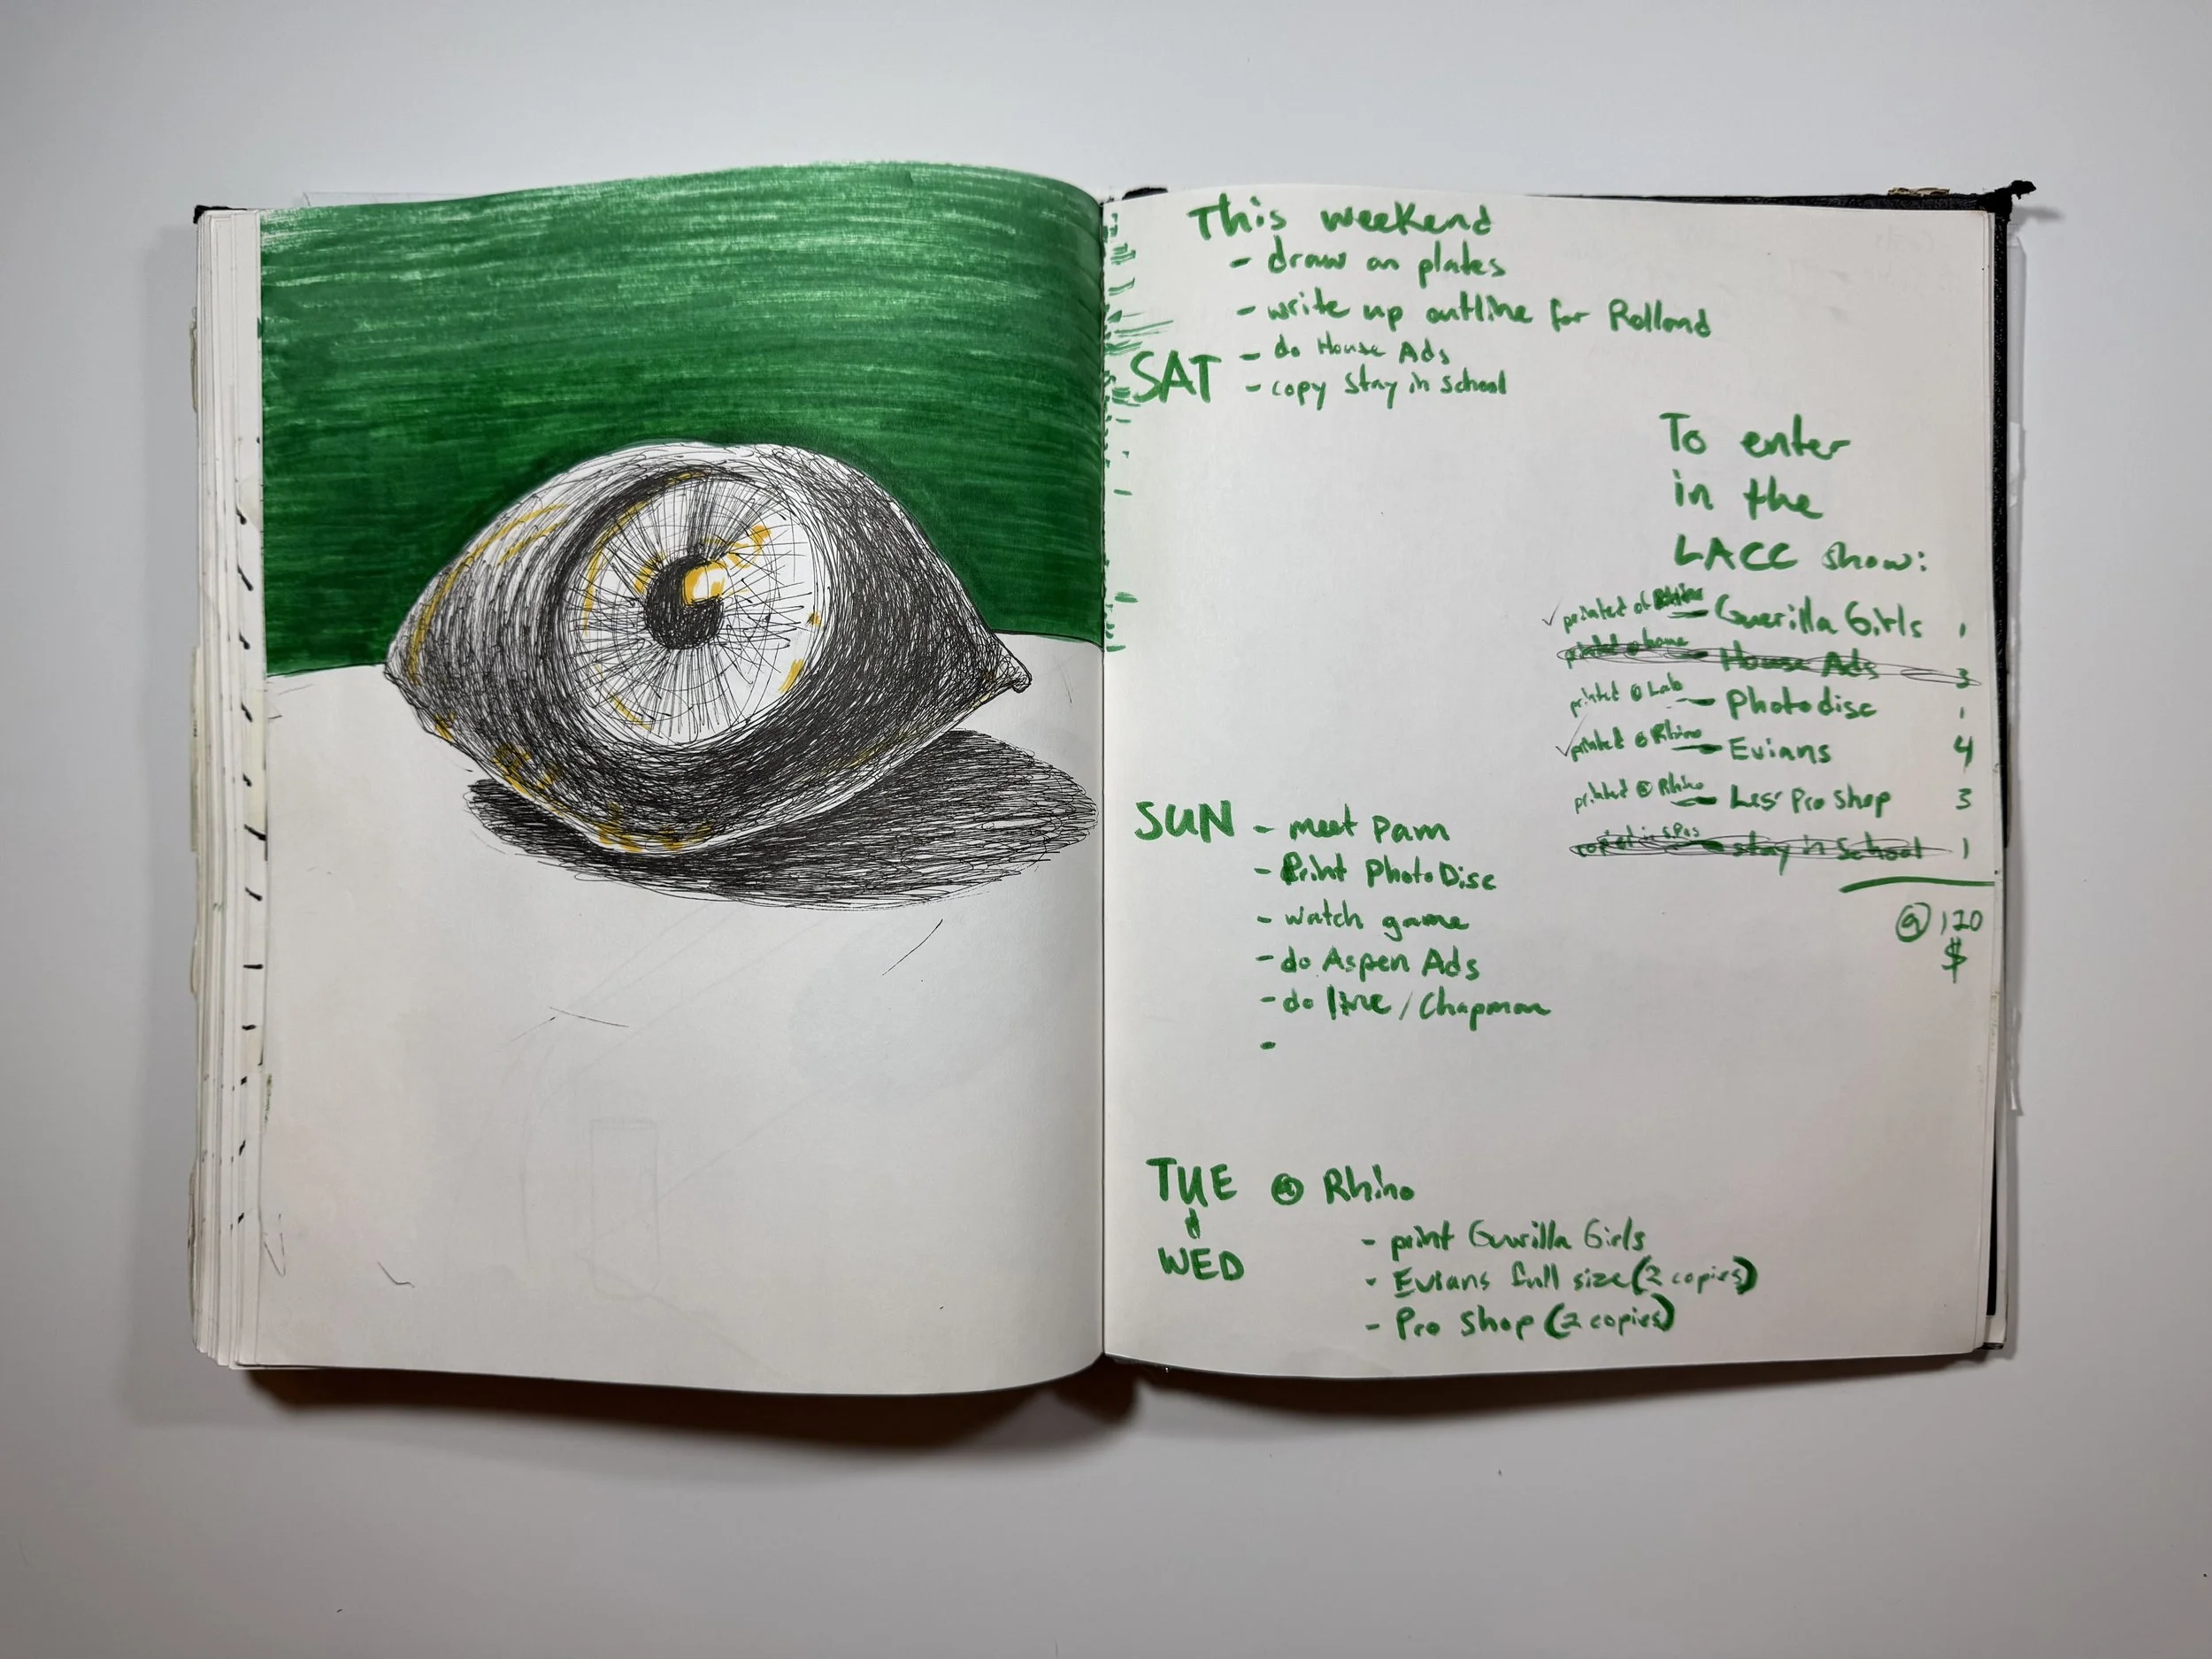 This weekend
- draw on plates
- write up outline for Rolland
SAT - do House Ads
- copy Stay in School
To enter
in the
LACC show:
✓ printed at Rhino - Guerilla Girls 1
printed @ home - House Ads 3
printed @ Lab - Photodisc 1
✓ printed @ Rhino - Evians 4
printed @ Rhino - Les' Pro Shop 3
- stay in School 1
@ 120
$
SUN - meet Pam
- Print PhotoDisc
- watch game
- do Aspen Ads
- do line / Chapman
-
TUE @ Rhino
&
WED
- print Guerilla Girls
- Evians full size (2 copies)
- Pro Shop (2 copies)